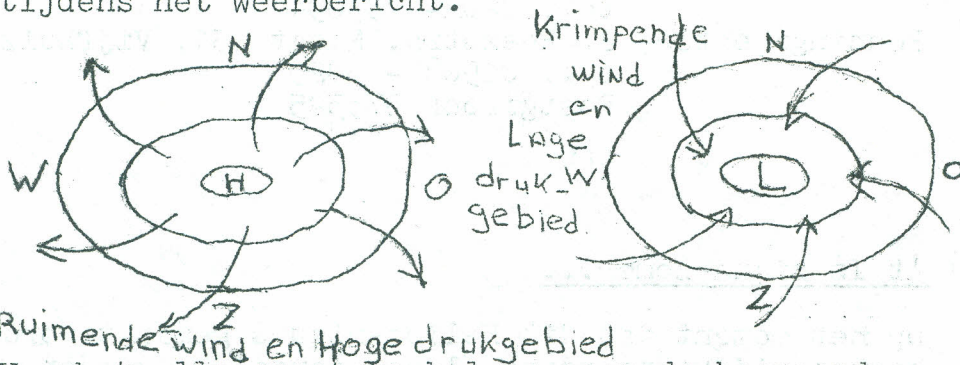 tijdens het weerbericht.
N
W
H
O
Z
Ruimende wind en Hoge drukgebied
Krimpende
wind
en
Lage
druk-
gebied.
N
W
L
O
Z